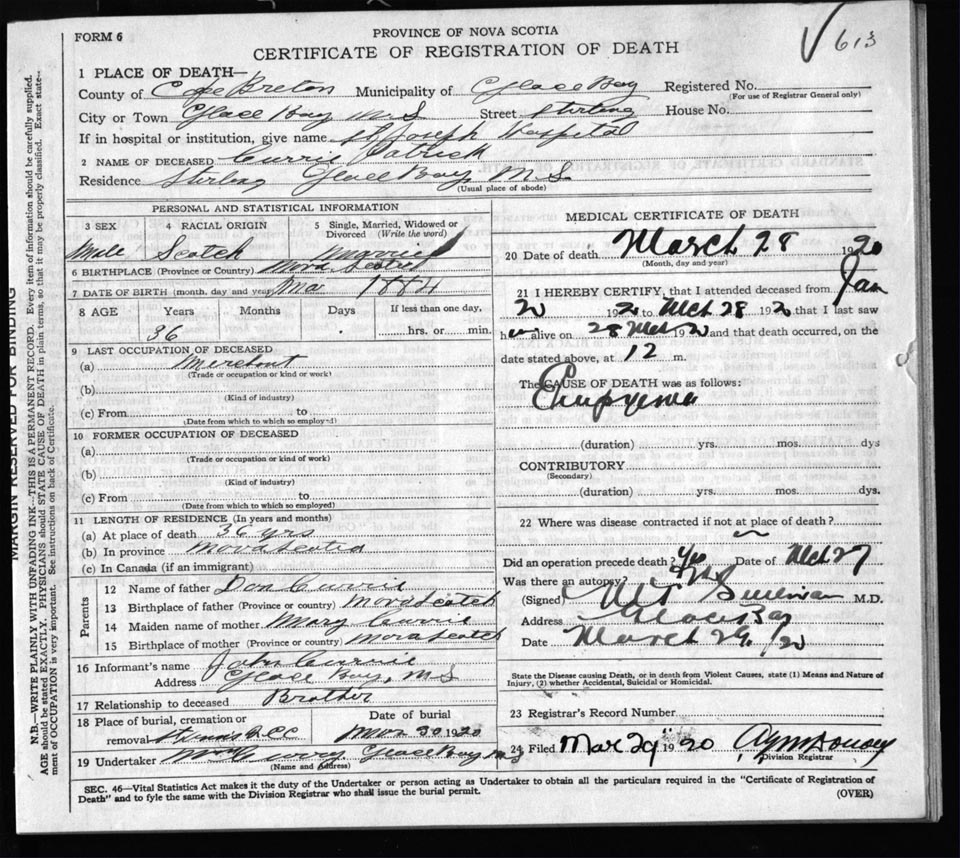 FORM 6
PROVINCE OF NOVA SCOTIA
613
CERTIFICATE OF REGISTRATION OF DEATH
1 PLACE OF DEATH—
County of Cape Breton Municipality of Glace Bay Registered No.
(For use of Registrar General only)
City or Town Glace Bay N S Street Sterling House No.
If in hospital or institution, give name St Joseph Hospital
2 NAME OF DECEASED Currie Patrick
Residence Sterling Glace Bay N S
(Usual place of abode)
PERSONAL AND STATISTICAL INFORMATION
3 SEX 4 RACIAL ORIGIN 5 Single, Married, Widowed or Divorced (Write the word)
Male Scotch Married
6 BIRTHPLACE (Province or Country) Nova Scotia
7 DATE OF BIRTH (month, day and year) 1884
8 AGE Years Months Days If less than one day,
36 hrs. or min.
9 LAST OCCUPATION OF DECEASED
(a)
(Trade or occupation or kind or work)
(b)
(Kind of industry)
(c) From to
(Date from which to which so employed)
10 FORMER OCCUPATION OF DECEASED
(a)
(Trade or occupation or kind of work)
(b)
(Kind of industry)
(c) From to
(Date from which to which so employed)
11 LENGTH OF RESIDENCE (In years and months)
(a) At place of death 36 yrs
(b) In province Nova Scotia
(c) In Canada (if an immigrant)
Parents
12 Name of father Don Currie
13 Birthplace of father (Province or country) Nova Scotch
14 Maiden name of mother Mary Currie
15 Birthplace of mother (Province or country) Nova Scotch
16 Informant's name John Currie
Address Glace Bay, N S
17 Relationship to deceased Brother
18 Place of burial, cremation or removal Date of burial
30 1920
19 Undertaker Glace Bay N S
(Name and Address)
MEDICAL CERTIFICATE OF DEATH
20 Date of death March 28 1920
(Month, day and year)
21 I HEREBY CERTIFY, that I attended deceased from Jan
20 192 to Mch 28 1920 that I last saw
h alive on 28 Mch 1920 and that death occurred, on the
date stated above, at 12 m.
The CAUSE OF DEATH was as follows:
Empyema
(duration) yrs. mos. dys
CONTRIBUTORY
(Secondary)
(duration) yrs. mos. dys.
22 Where was disease contracted if not at place of death?
Did an operation precede death? Yes Date of Mch 27
Was there an autopsy? No
(Signed) Sullivan M.D.
Address Glace Bay
Date March 29/20
State the Disease causing Death, or in death from Violent Causes, state (1) Means and Nature of
Injury, (2) whether Accidental, Suicidal or Homicidal.
23 Registrar's Record Number
24 Filed Mar 29 1920
Division Registrar
SEC. 46—Vital Statistics Act makes it the duty of the Undertaker or person acting as Undertaker to obtain all the particulars required in the "Certificate of Registration of
Death" and to fyle the same with the Division Registrar who shall issue the burial permit.
(OVER)
MARGIN RESERVED FOR BINDING
N.B.—WRITE PLAINLY WITH UNFADING INK—THIS IS A PERMANENT RECORD. Every item of information should be carefully supplied.
AGE should be stated EXACTLY. PHYSICIANS should STATE CAUSE OF DEATH in plain terms, so that it may be properly classified. Exact state-
ment of OCCUPATION is very important. See instructions on back of Certificate.